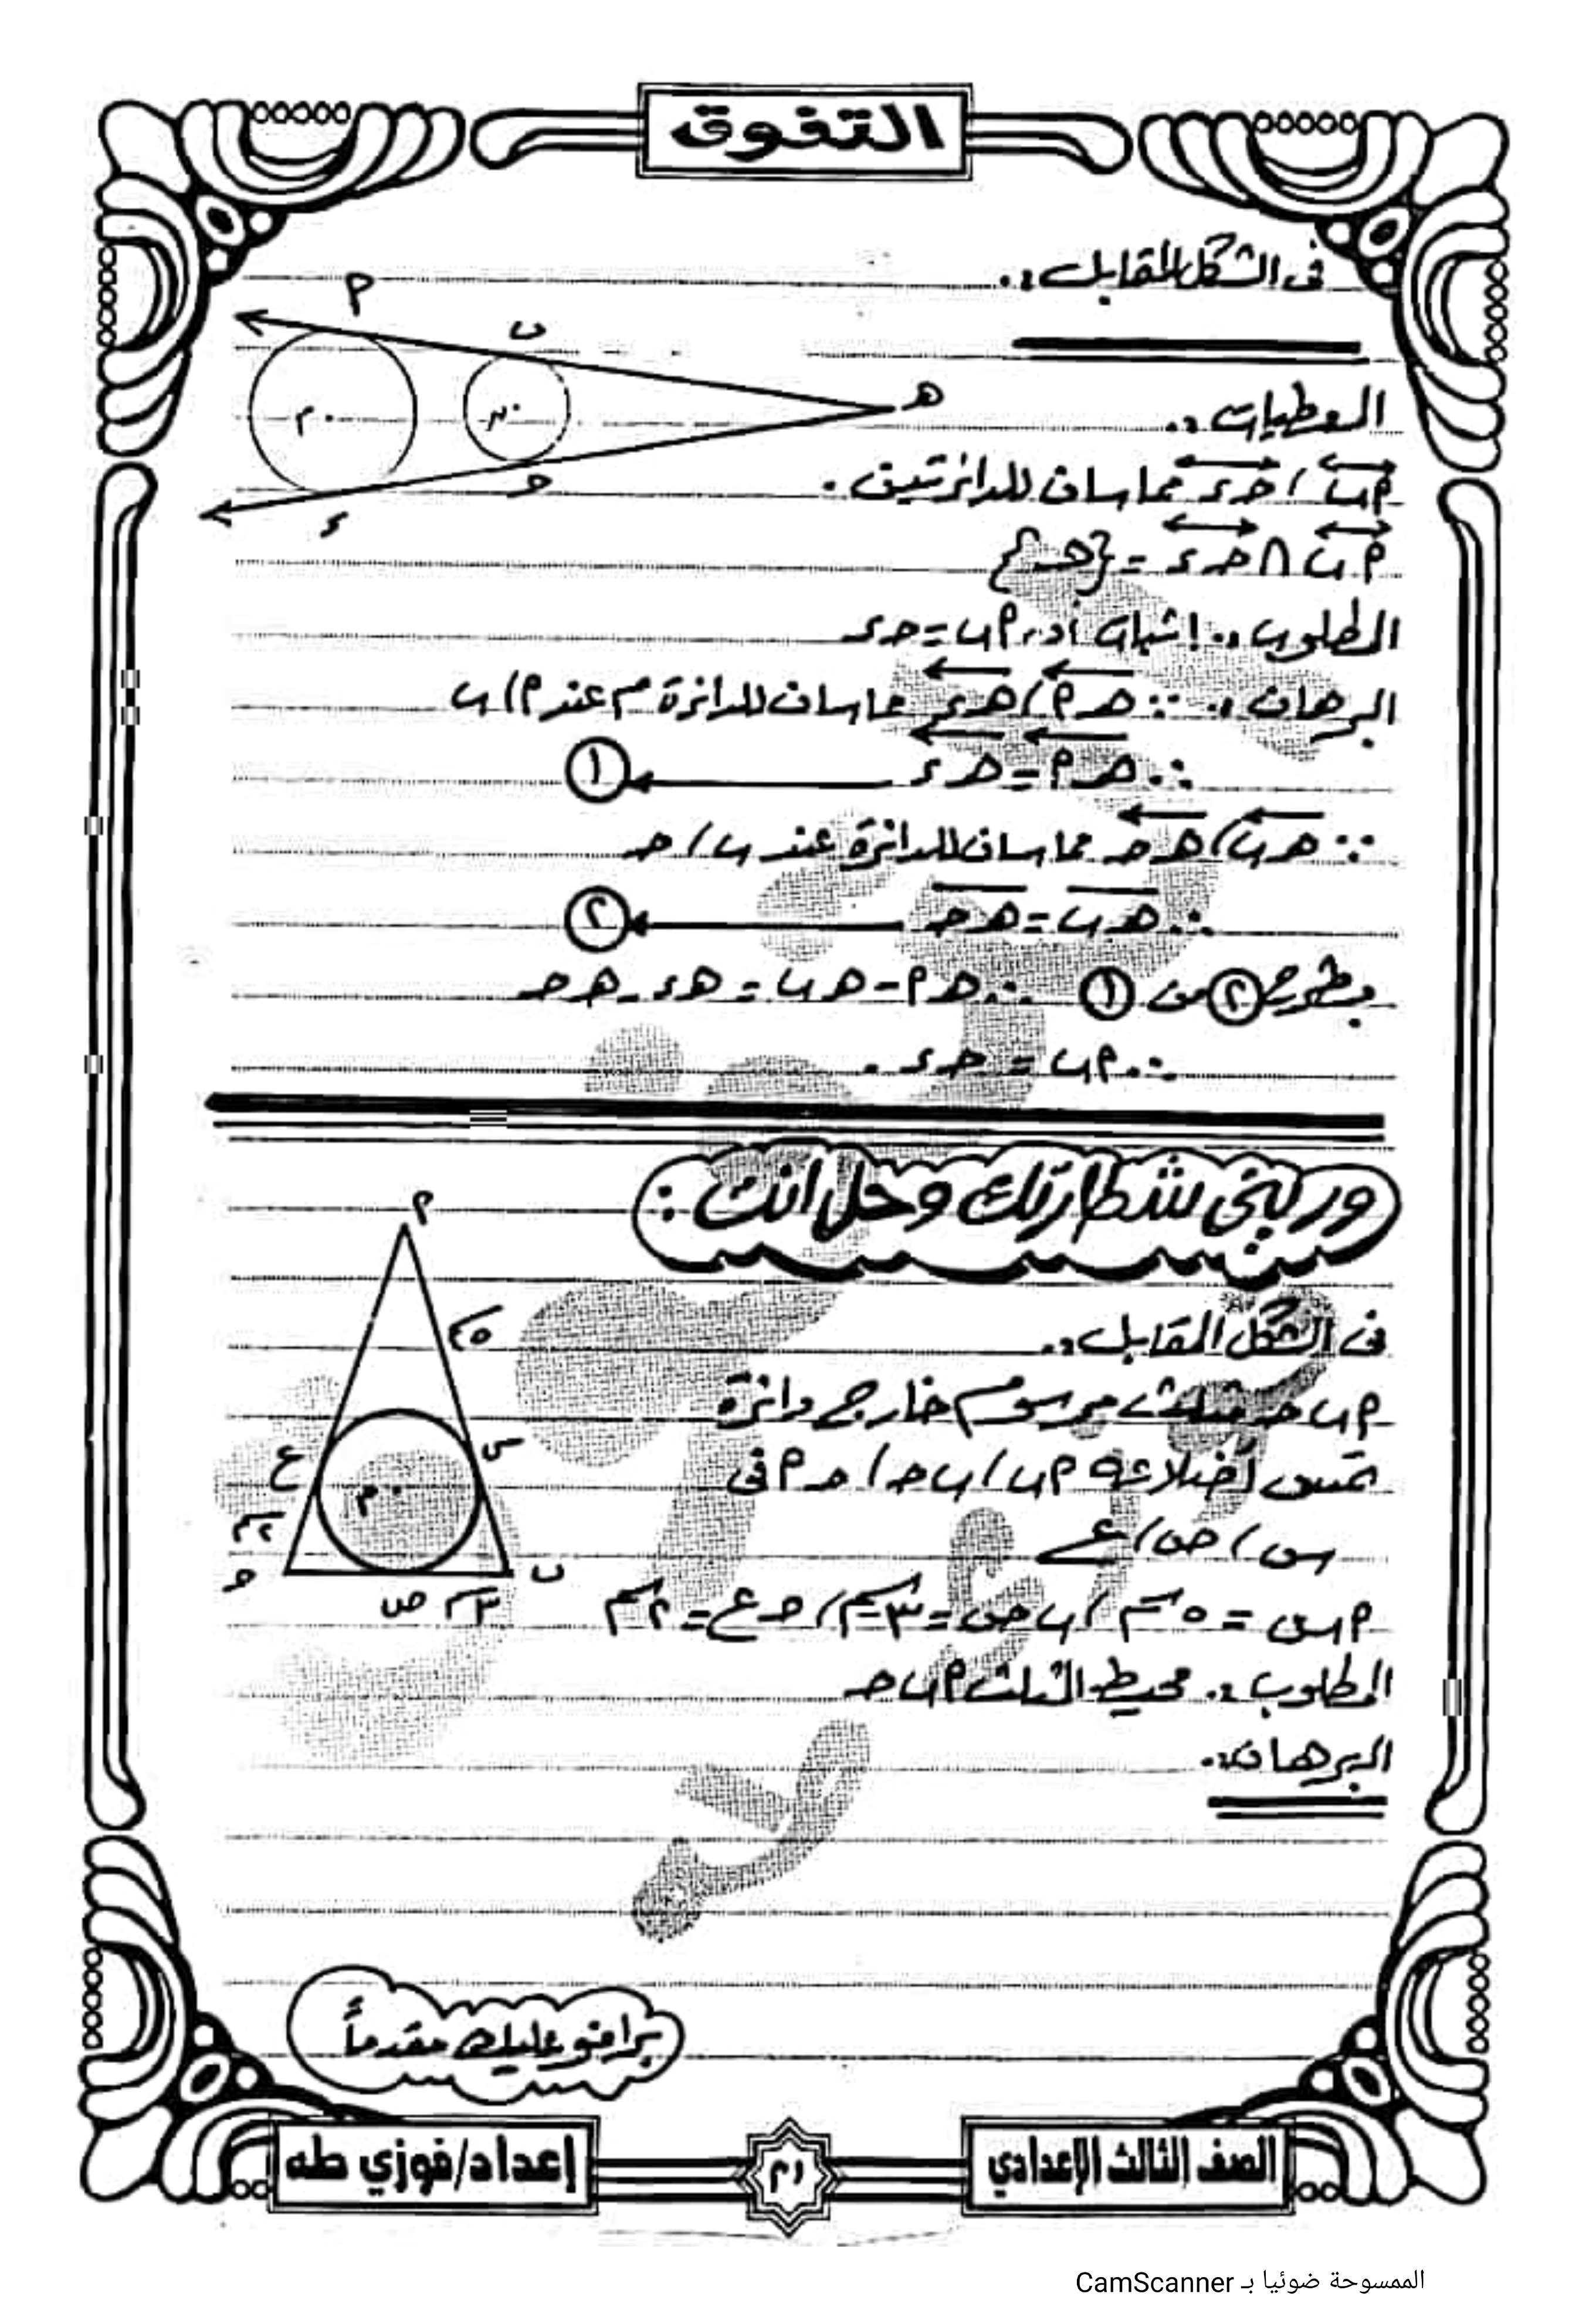 التفوق
فى الشكل المقابل :.
م
ب
هـ
م
ن
العطيات :.
أب / حـ ء مماسان للدائرتين .
ء
حـ
أ ب ∩ حـ ء = {هـ}
المطلوب :. إثبات أن أ ب = حـ ء
البرهان :. ∵ هـ أ / هـ ء مماسان للدائرة م عند أ / ب
∴ هـ أ = هـ ء ← ①
∵ هـ ب / هـ حـ مماسان للدائرة عند ب / حـ
∴ هـ ب = هـ حـ ← ②
بطرح ② من ① ∴ هـ أ - هـ ب = هـ ء - هـ حـ
∴ أ ب = حـ ء .
ورينى شطارتك وحل انت :
أ
٥سم
فى الشكل المقابل :.
أ ب حـ مثلث مرسوم خارج دائرة
س
ع
م
تمس أضلاعه أ ب / ب حـ / حـ أ فى
٢سم
س / ص / ع
حـ
ب
ص ٣سم
أ س = ٥سم / ب ص = ٣سم / حـ ع = ٢سم
المطلوب :. محيط المثلث أ ب حـ
البرهان :.
برافو عليك مقدماً
الصف الثالث الإعدادي
إعداد/فوزي طه
الممسوحة ضوئيا بـ CamScanner